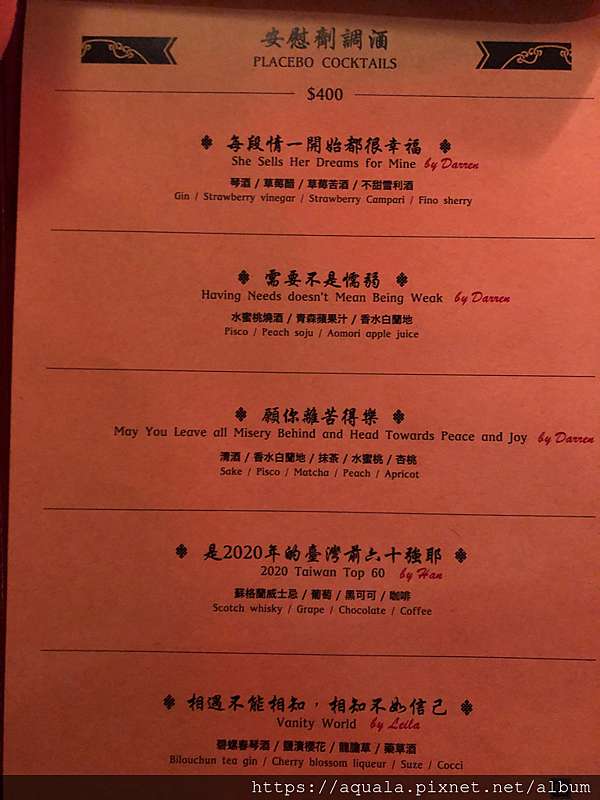 安慰劑調酒
PLACEBO COCKTAILS
$400
每段情一開始都很幸福
She Sells Her Dreams for Mine by Darren
琴酒 / 草莓醋 / 草莓苦酒 / 不甜雪利酒
Gin / Strawberry vinegar / Strawberry Campari / Fino sherry
需要不是懦弱
Having Needs doesn't Mean Being Weak by Darren
水蜜桃燒酒 / 青森蘋果汁 / 香水白蘭地
Pisco / Peach soju / Aomori apple juice
願你離苦得樂
May You Leave all Misery Behind and Head Towards Peace and Joy by Darren
清酒 / 香水白蘭地 / 抹茶 / 水蜜桃 / 杏桃
Sake / Pisco / Matcha / Peach / Apricot
是2020年的臺灣前六十強耶
2020 Taiwan Top 60 by Han
蘇格蘭威士忌 / 葡萄 / 黑可可 / 咖啡
Scotch whisky / Grape / Chocolate / Coffee
相遇不能相知，相知不如信己
Vanity World by Leila
碧螺春琴酒 / 鹽漬櫻花 / 龍膽草 / 藥草酒
Bilouchun tea gin / Cherry blossom liqueur / Suze / Cocci
https://aquala.pixnet.net/album